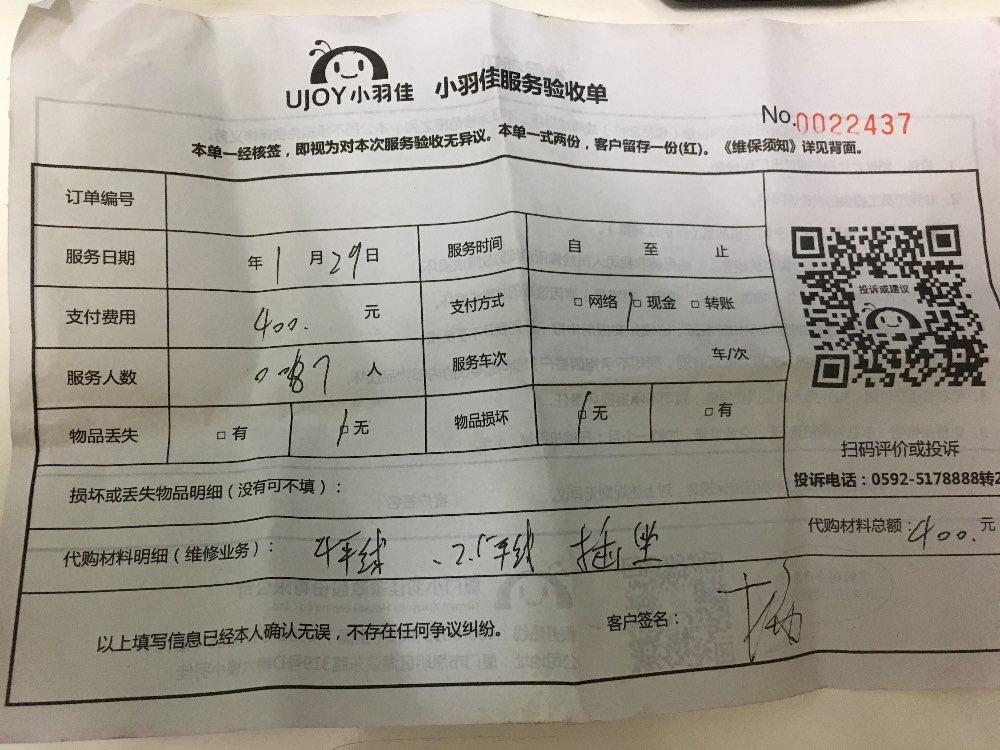 UJOY小羽佳 小羽佳服务验收单
No.0022437
本单一经核签，即视为对本次服务验收无异议。本单一式两份，客户留存一份(红)。《维保须知》详见背面。
订单编号
服务日期 年 1 月 29 日 服务时间 自 至 止
支付费用 400. 元 支付方式 □网络 □现金 □转账
服务人数 人 服务车次 车/次
物品丢失 □有 □无 物品损坏 □无 □有
投诉或建议
扫码评价或投诉
投诉电话：0592-5178888转2
损坏或丢失物品明细（没有可不填）：
代购材料明细（维修业务）： 4平线 、2.5平线 插坐
代购材料总额：400.元
以上填写信息已经本人确认无误，不存在任何争议纠纷。
客户签名：